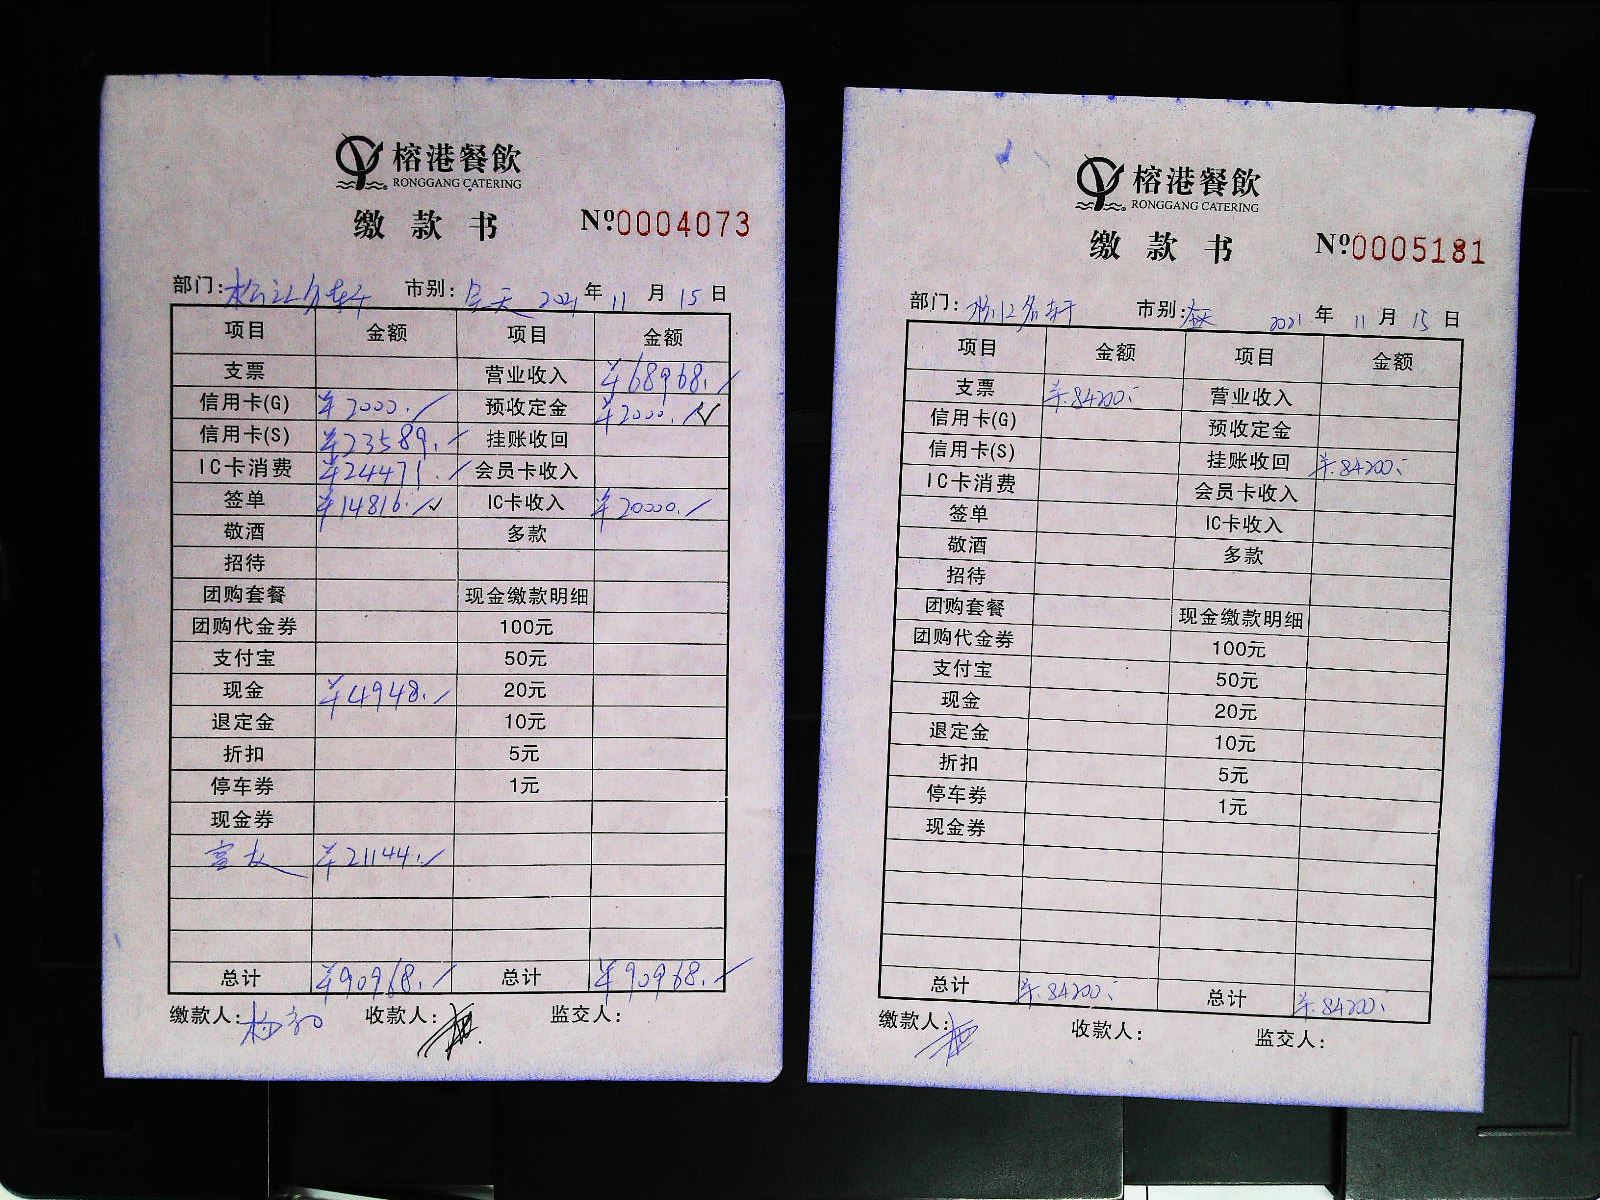 榕港餐飲
RONGGANG CATERING
缴款书 №0004073
部门: 松江名轩 市别: 全天 2021年11月15日
项目 金额 项目 金额
支票 营业收入 ¥68968.
信用卡(G) ¥2000. 预收定金 ¥2000.
信用卡(S) ¥23589. 挂账收回
IC卡消费 ¥24471. 会员卡收入
签单 ¥14816. IC卡收入 ¥20000.
敬酒 多款
招待
团购套餐 现金缴款明细
团购代金券 100元
支付宝 50元
现金 ¥4948. 20元
退定金 10元
折扣 5元
停车券 1元
现金券
富友 ¥21144.
总计 ¥90968. 总计 ¥90968.
缴款人: 收款人: 监交人:
榕港餐飲
RONGGANG CATERING
缴款书 №0005181
部门: 松江名轩 市别: 全天 2021年11月15日
项目 金额 项目 金额
支票 ¥.84200. 营业收入
信用卡(G) 预收定金
信用卡(S) 挂账收回 ¥.84200.
IC卡消费 会员卡收入
签单 IC卡收入
敬酒 多款
招待
团购套餐 现金缴款明细
团购代金券 100元
支付宝 50元
现金 20元
退定金 10元
折扣 5元
停车券 1元
现金券
总计 ¥.84200. 总计 ¥.84200.
缴款人: 收款人: 监交人: